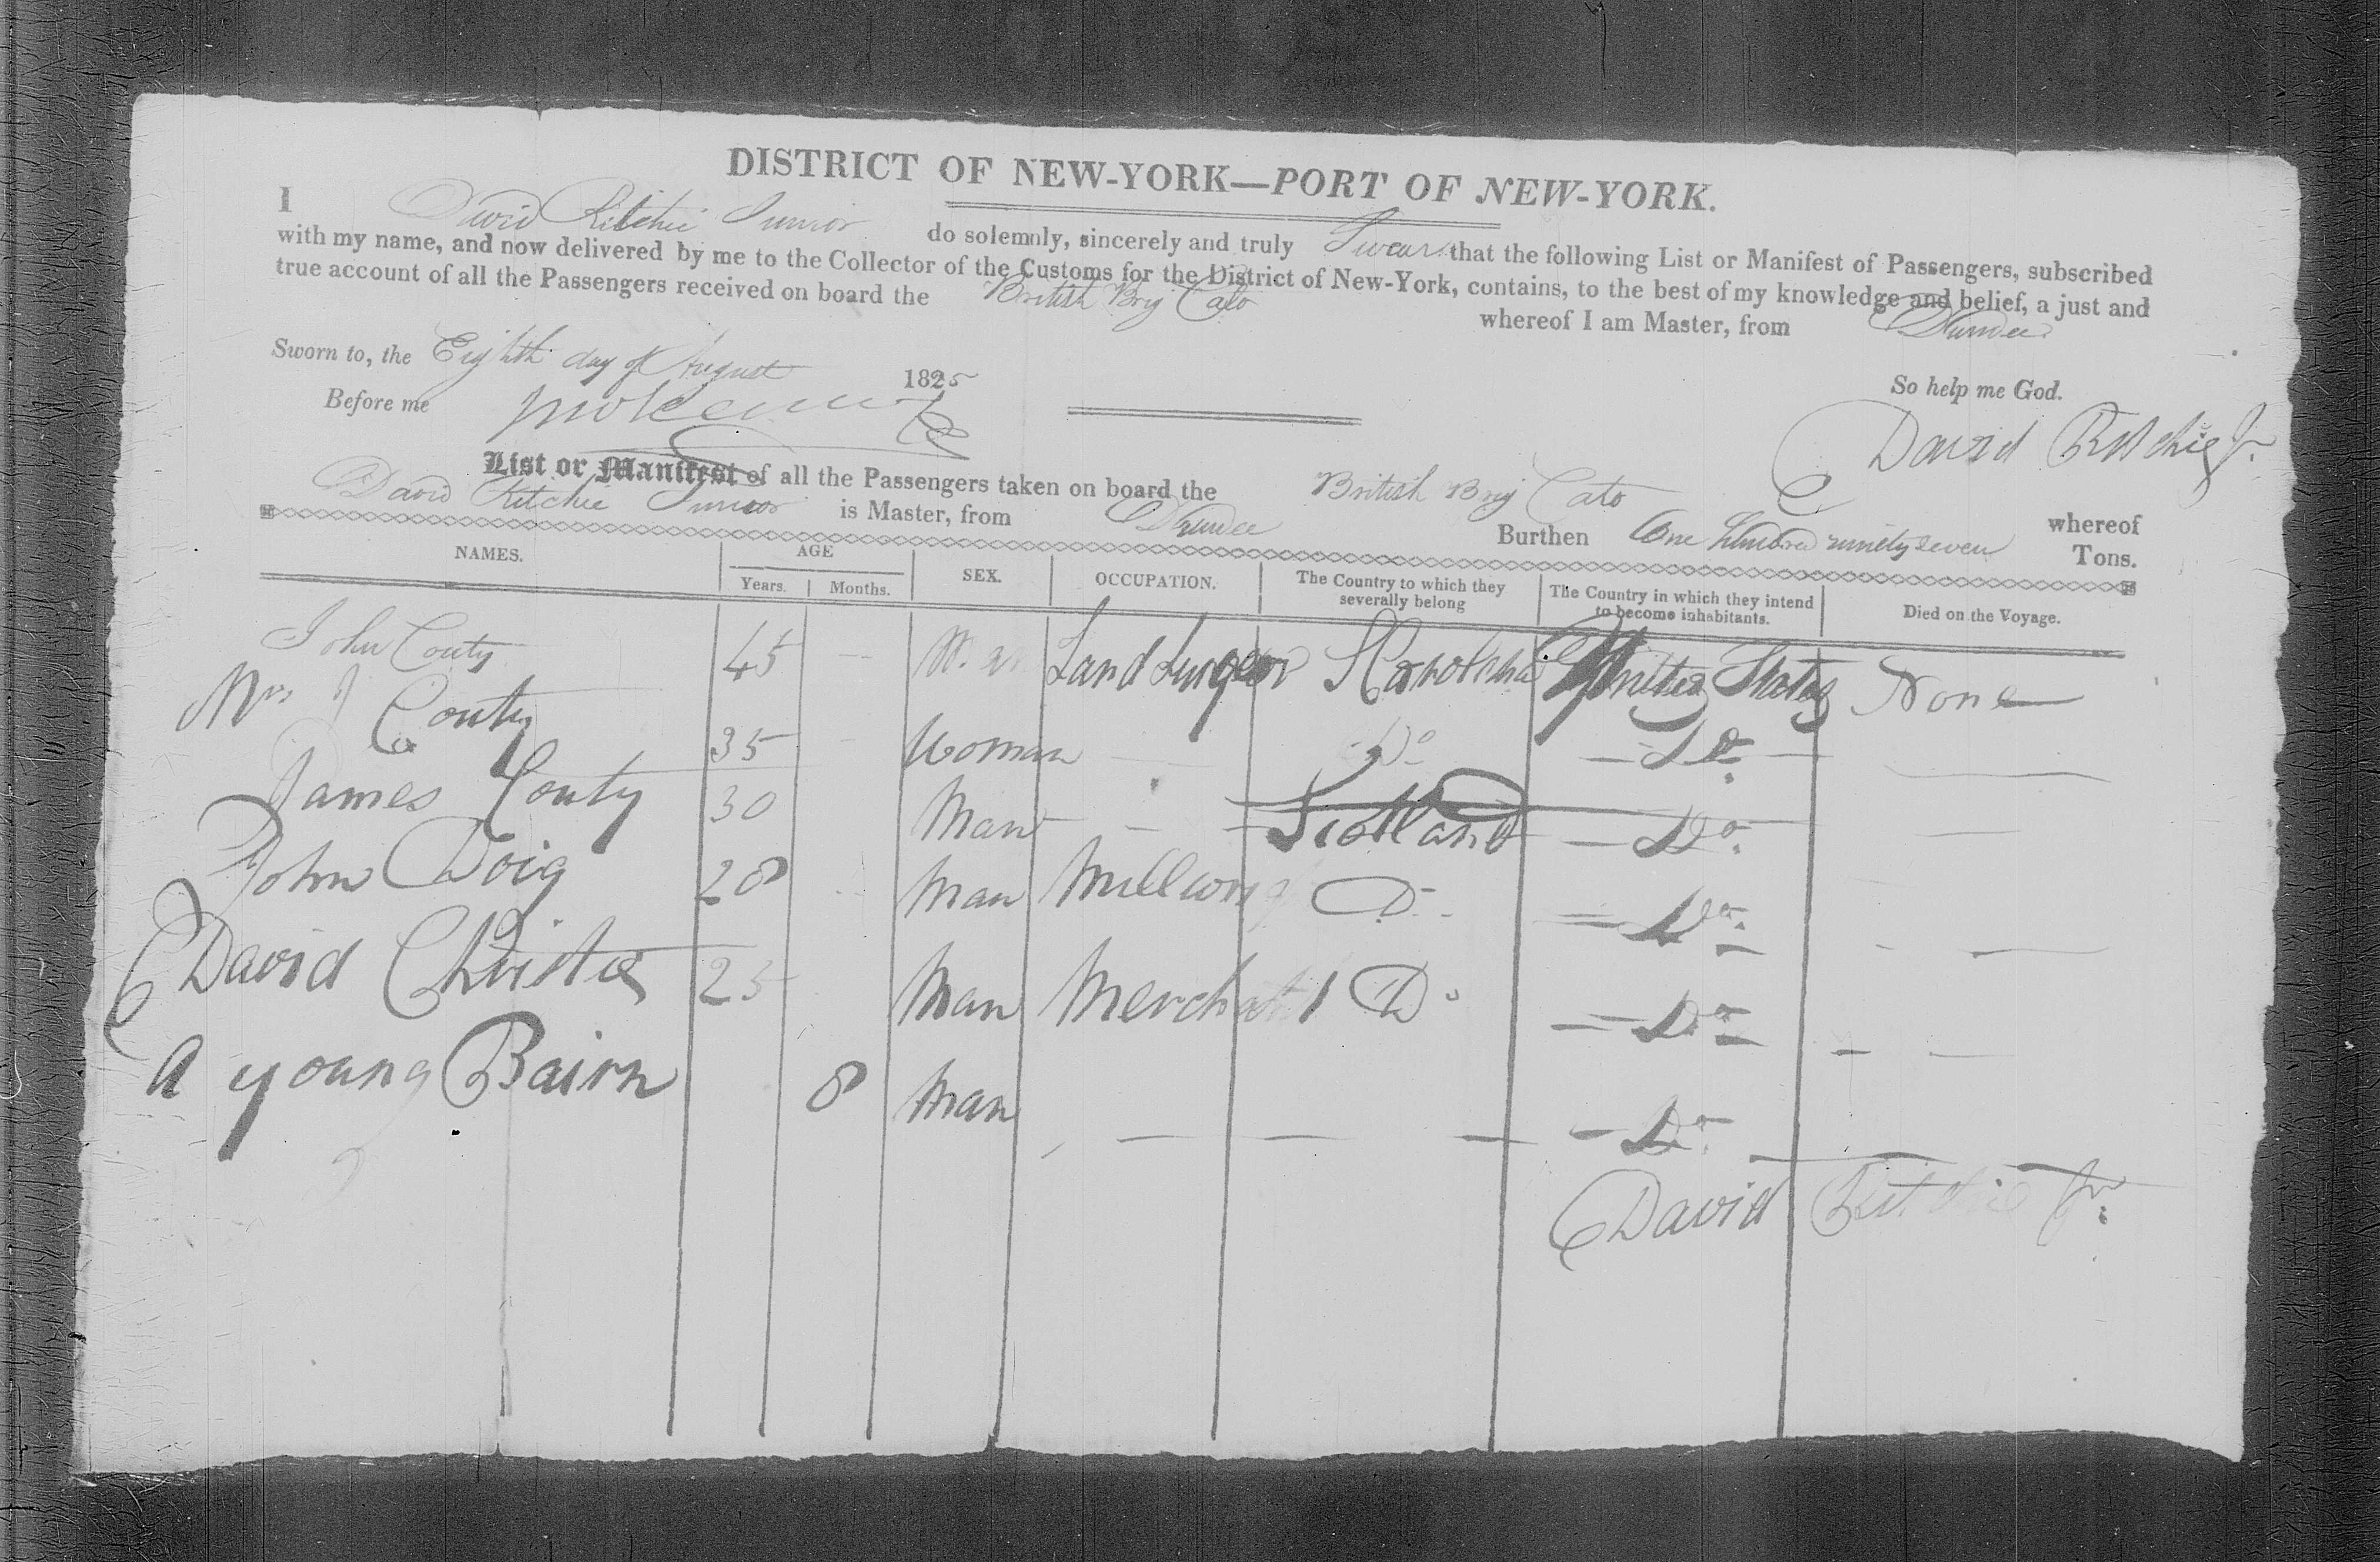 DISTRICT OF NEW-YORK—PORT OF NEW-YORK.
I David Ritchie Junior do solemnly, sincerely and truly Swear that the following List or Manifest of Passengers, subscribed
with my name, and now delivered by me to the Collector of the Customs for the District of New-York, contains, to the best of my knowledge and belief, a just and
true account of all the Passengers received on board the British Brig Cato whereof I am Master, from Dundee
Sworn to, the Eighth day of August 1825 So help me God.
Before me
David Ritchie Jr.
List or Manifest of all the Passengers taken on board the British Brig Cato whereof
David Ritchie Junior is Master, from Dundee Burthen One Hundred ninety seven Tons.
NAMES. AGE Years. Months. SEX. OCCUPATION. The Country to which they severally belong The Country in which they intend to become inhabitants. Died on the Voyage.
John Couty 45 Land United States None
Mrs J Couty 35 Woman Do Do
James Couty 30 Man Scotland Do
John Doig 28 Man Do Do
David Christie 25 Man Merchant Do Do
A young Bairn 8 Man Do
David Ritchie Jr.